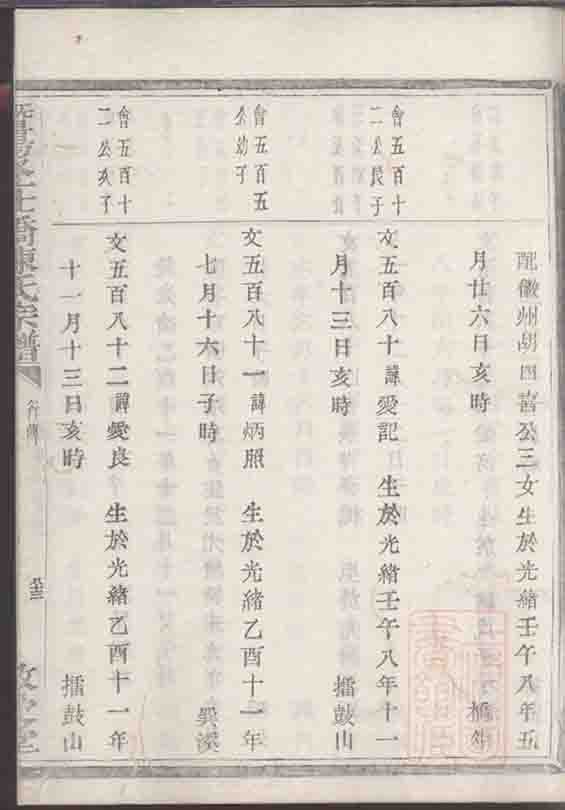 配徽州胡四喜公三女生於光緒壬午八年五
月廿六日亥時
會五百十
二公長子
文五百八十諱愛記 生於光緒壬午八年十一
月十三日亥時 擂鼓山
會五百五
公幼子
文五百八十一諱炳照 生於光緒乙酉十一年
七月十六日子時
會五百十
二公次子
文五百八十二諱愛良 生於光緒乙酉十一年
十一月十三日亥時 擂鼓山
橋陳氏宗譜
行傳